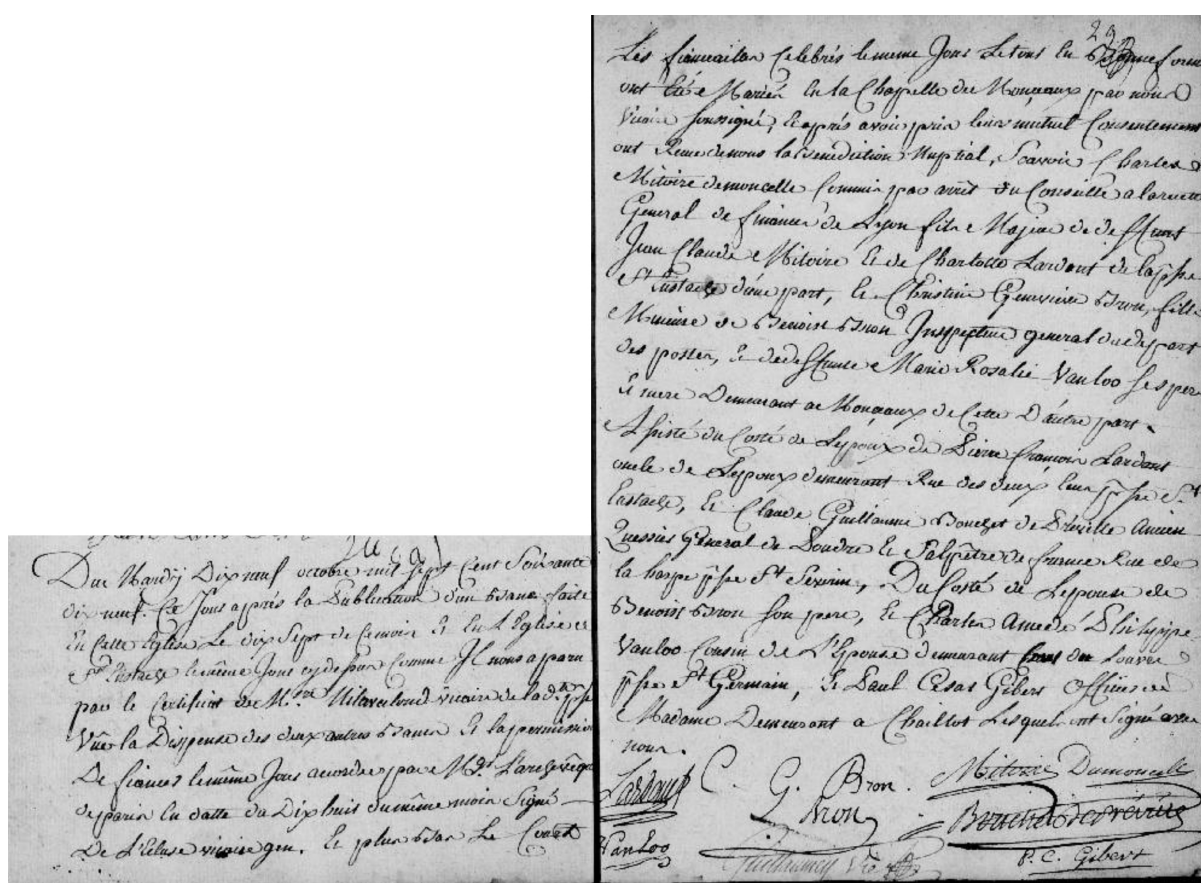 Du Mardy Dix neuf octobre mil sept Cent Soixante
dix neuf. Ce Jour après la Publication d'un Bans faite
En Cette Eglise Le dix Sept de Cemois Et En L'Eglise de
St Eustache le même Jour cy dessus Comme Il nous a paru
par le Certificat de Mr. vicaire de la dte psse
Vüe la Dispense des deux autres Bans Et la permission
De fiancer le même Jour accordée par Mgr L'archevêque
de paris En datte du Dix huit du même mois Signé
De L'Ecluse vicaire gen. Et plus Bas Le
29
Les fiancailles Celebrés le meme Jour Le tout En Bonne forme
ont Eté Mariés En la Chapelle de Monceaux par nous
Vicaire soussigné, Et après avoir pris leur mutuel Consentement
ont Recu de nous la Benediction Nuptial, Scavoir Charles
Mitoire demoncelle Commis par arrêt du Conseille a la recette
General de finance de Lyon fils Majeur de deffunt
Jean Claude Mitoire Et de Charlotte Lardant de la psse
St Eustache d'une part, Et Christine Genevieve Bron, fille
Mineure de Benoist Bron Inspecteur general du depart
des postes, Et de deffunte Marie Rosalie Vanloo Ses pere
Et mere Demeurant a Monceaux de Cette D'autre part.
Assisté du Costé de Lepoux de Pierre francois Lardant
oncle de Lepoux demeurant Rue des deux Ecus psse St
Eustache, Et Claude Guillaume Bouchet de Ancien
General de Poudre Et Salpêtre de france Rue de
la harpe psse St Severin, Du Costé de Lepouse de
Benoist Bron Son pere, Et Charles Amedé Philippe
Vanloo Cousin de L'Epouse demeurant du Louvre
psse St Germain, Et Paul Cesar Gibert Officier de
Madame Demeurant a Chaillot Lesquels ont Signé avec
nous.
Lardant C. G. Bron. Mitoire Dumoncelle
Bron Bouchet
Vanloo Vic P. C. Gibert